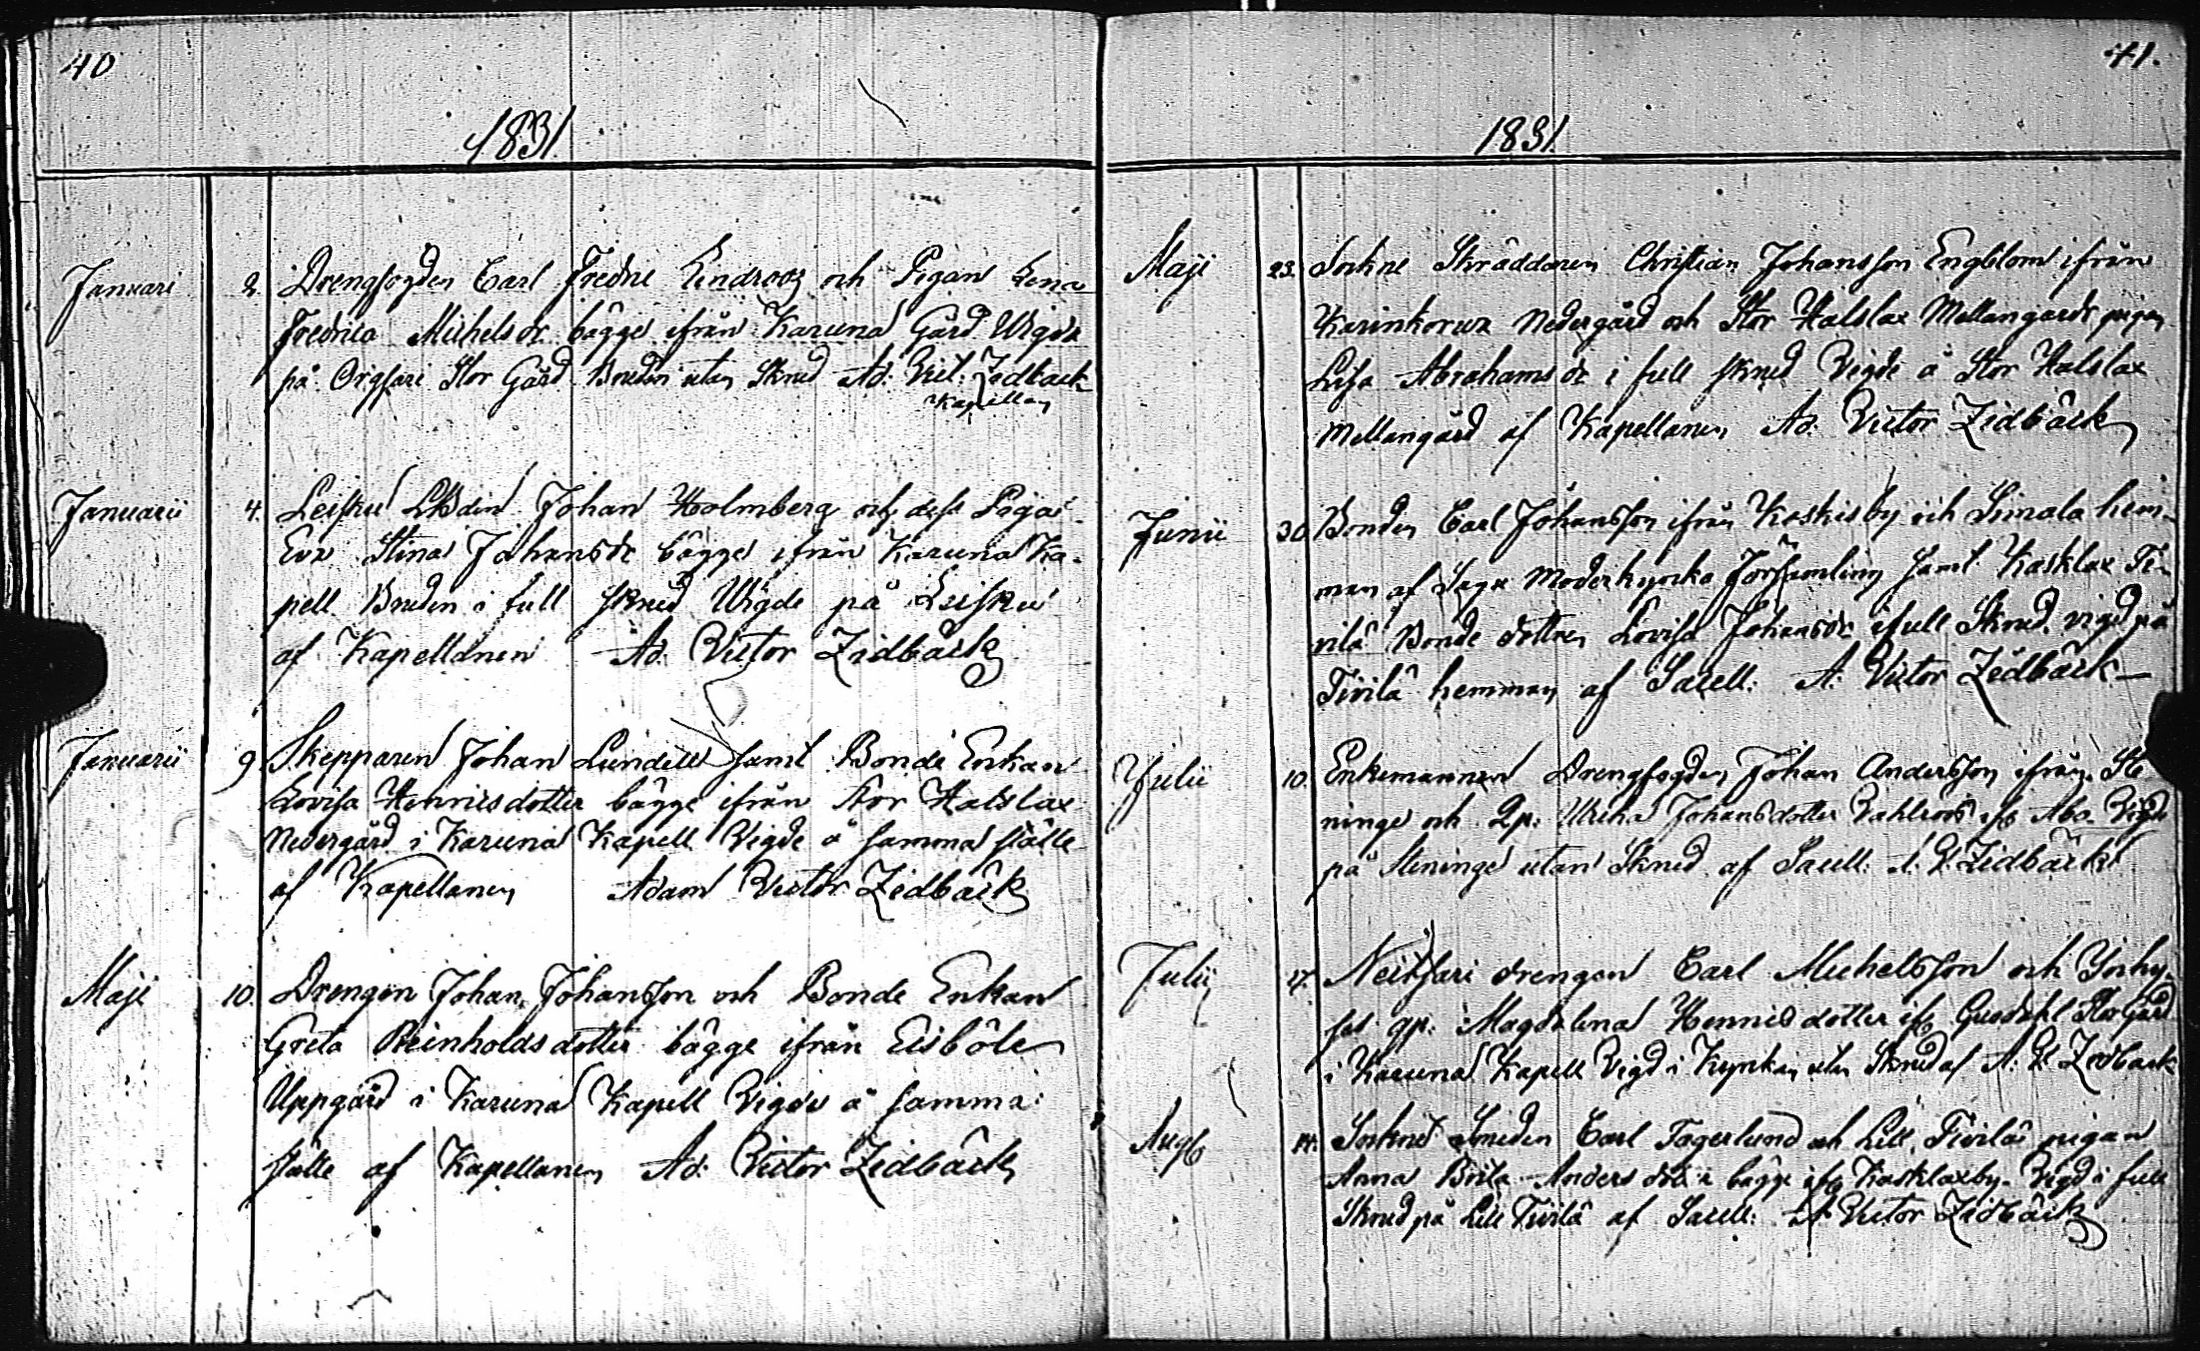 40
1831.
Januari 2. Drengfogden Carl Fredric Lindroos och Pigan Lena
Fredrica Michelsdr bägge ifrån Karuna Gård Wigde
på Orgsari Stor Gård Bruden utan Skrud Ad: Vict: Zidbäck
Kapellan
Januarii 4. Leisku LBdn Johan Holmberg och Pigan
Eva Stina Johansdr bägge ifrån Karuna Ka-
pell Bruden i full skrud Wigde på Leisku
af Kapellanen Ad: Victor Zidbäck
Januarii 9. Skepparen Johan Lundell samt Bonde Enkan
Lovisa Henricsdotter bägge ifrån Stor Halslax
Nedergård i Karuna Kapell Vigde å samma ställe
af Kapellanen Adam Victor Zidbäck
Maji 10. Drengen Johan Johansson och Bonde Enkan
Greta Reinholdsdotter bägge ifrån Eisböle
Uppgård i Karuna Kapell Vigde å samma
ställe af Kapellanen Ad: Victor Zidbäck
41.
1831.
Maji 23. Sockne Skräddaren Christian Johansson Engblom ifrån
Karinkorva Nedergård och Stor Halslax Mellangårds pigan
Lisa Abrahamsdr i full skrud Vigde å Stor Halslax
Mellangård af Kapellanen Ad: Victor Zidbäck
Junii 30. Bonden Carl Johansson ifrån Koskis by och Simala hem-
man af Sagu Moderkyrko Församling samt Kasklax Ti-
vilä Bonde dottren Lovisa Johansdr i full Skrud, vigd på
Tivilä hemman af Sacell: A: Victor Zidbäck
Julii 10. Enkemannen Drengfogden Johan Andersson ifrån Ste
ninge och Qp: Ulrica Johansdotter Vahlroos ifr Åbo Vigde
på Steninge utan Skrud af Sacell: A: V. Zidbäck
Julii 17. Neitsari drengen Carl Michelsson och Inhy-
ses qp: Magdalena Henricsdotter ifr Stor Gård
i Karuna Kapell Vigd i Kyrkan utan Skrud af A: V. Zidbäck
Aug 14. Sockne Smeden Carl Tagerlund och Lill Tivilä pigan
Anna Brita Andersdotter bägge ifr Kasklaxby. Vigd i full
Skrud på Lill Tivilä af Sacell: A: Victor Zidbäck